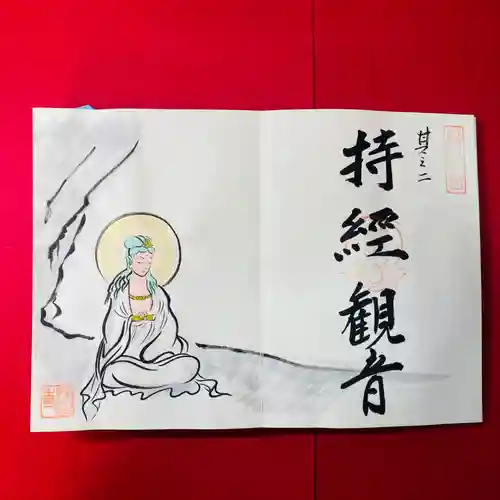 其之二
持經観音